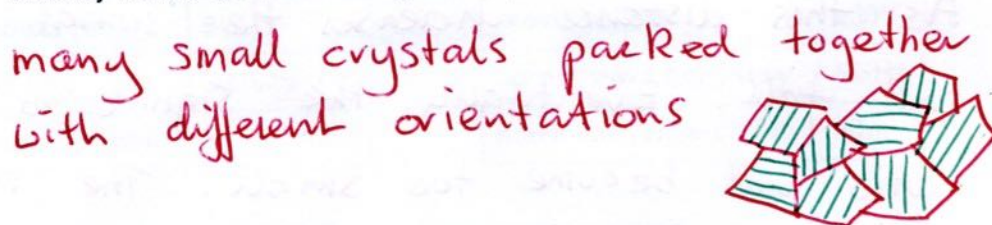 many small crystals packed together
with different orientations